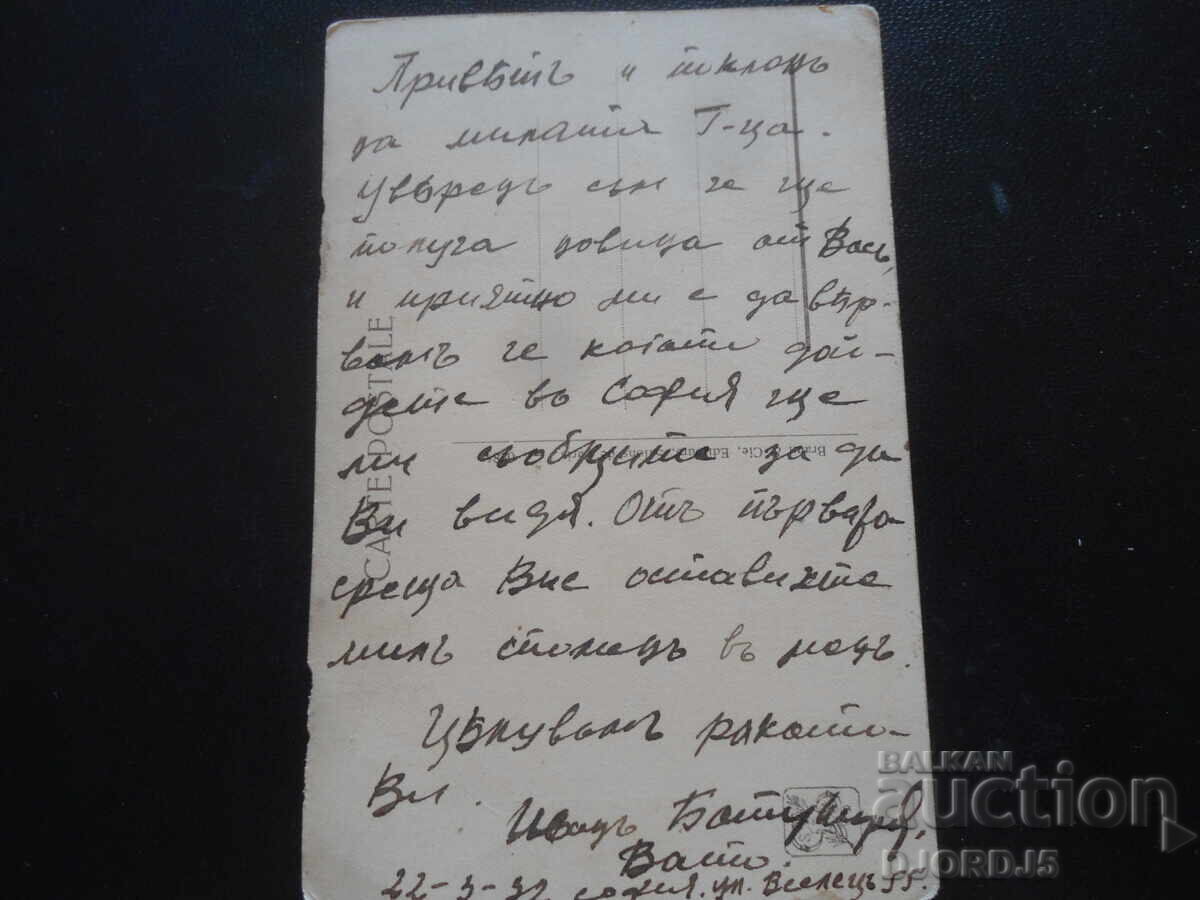 Привѣтъ и поклонъ
на милата Г-ца.
Увѣренъ съм че ще
получа новина от Васъ,
и приятно ми е да вѣр-
вамъ че когато дой-
дете въ София ще
ми съобщите за да
Ви видя. Отъ първата
среща Вие оставихте
милъ споменъ въ менъ.
Цѣлувамъ ръката
Ви.
Иванъ
22-3-32 София. ул.
CARTE POSTALE
& Cie,
BALKAN
auction
DJORDJ5